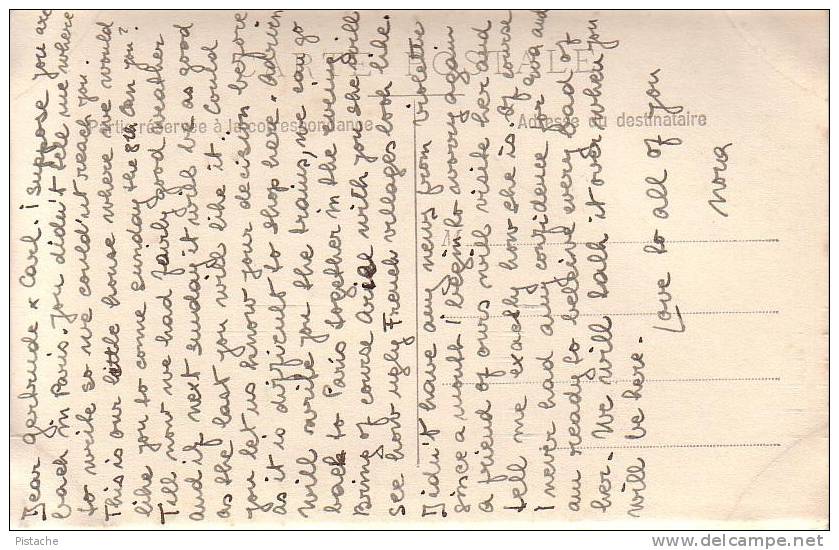 Dear Gertrude & Carl. I suppose you are
back in Paris. You didn't tell me where
to write so we could'nt reach you.
This is our little house where we would
like you to come sunday the 8th Can you?
Till now we had fairly good weather
and if next sunday it will be as good
as the last you will like it. Could
you let us know your decision before
as it is difficult to shop here. Adrien
will write you the trains, we can go
back to Paris together in the evening.
Bring of course Ariel with you she will
see how ugly French villages look like.
I didn't have any news from Violette
since a month I begin to worry again
a friend of ours will visite her and
tell me exactly how she is. Of course
I never had any confidence for and
am ready to believe every bad of
her. We will talk it over when you
will be here.
Love to all of you
Nora
CARTE POSTALE
Partie réservée à la correspondance
Adresse du destinataire
M
Pistache
http://www.delcampe.net